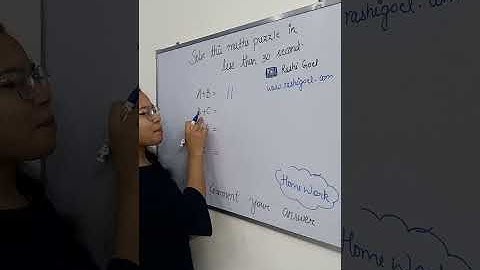 Solve this maths puzzle in
less than 30 second.
Rashi Goel
www.rashigoel.com
A+B= 11
+C =
=
Home Work
comment your answer